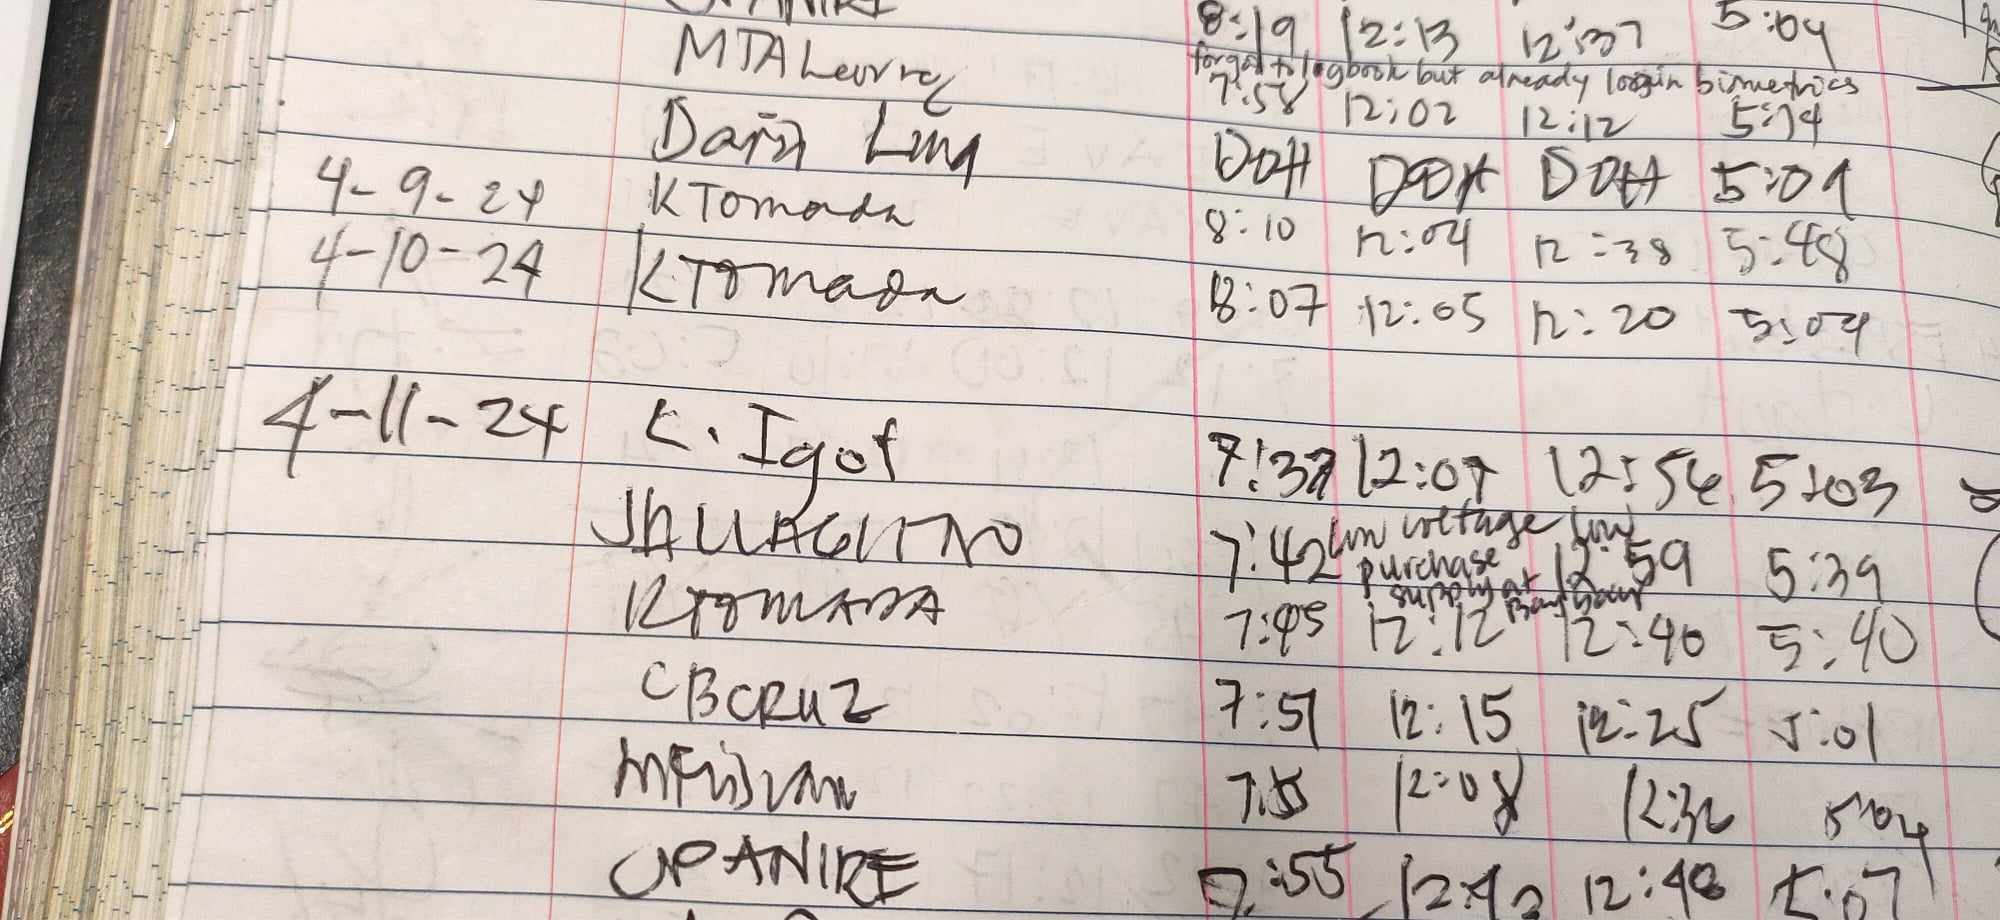 8:19 12:13 12:37 5:04
MTALeurrey forgot to logbook but already login biometrics
7:58 12:02 12:12 5:14
Ling DOH DOH DOH 5:09
4-9-24 KTomada 8:10 12:04 12:38 5:48
4-10-24 KTomada 8:07 12:05 12:20 5:04
4-11-24 K. Igot 7:37 12:07 12:56 5:03
JALLAGUITNO 7:42 low voltage
purchase 12:59 5:39
supply at
KTOMADA 7:45 12:12 12:40 5:40
CBCRUZ 7:51 12:15 12:25 5:01
12:08 12:32 5:04
UPANIRE 7:55 12:42 12:48 5:07